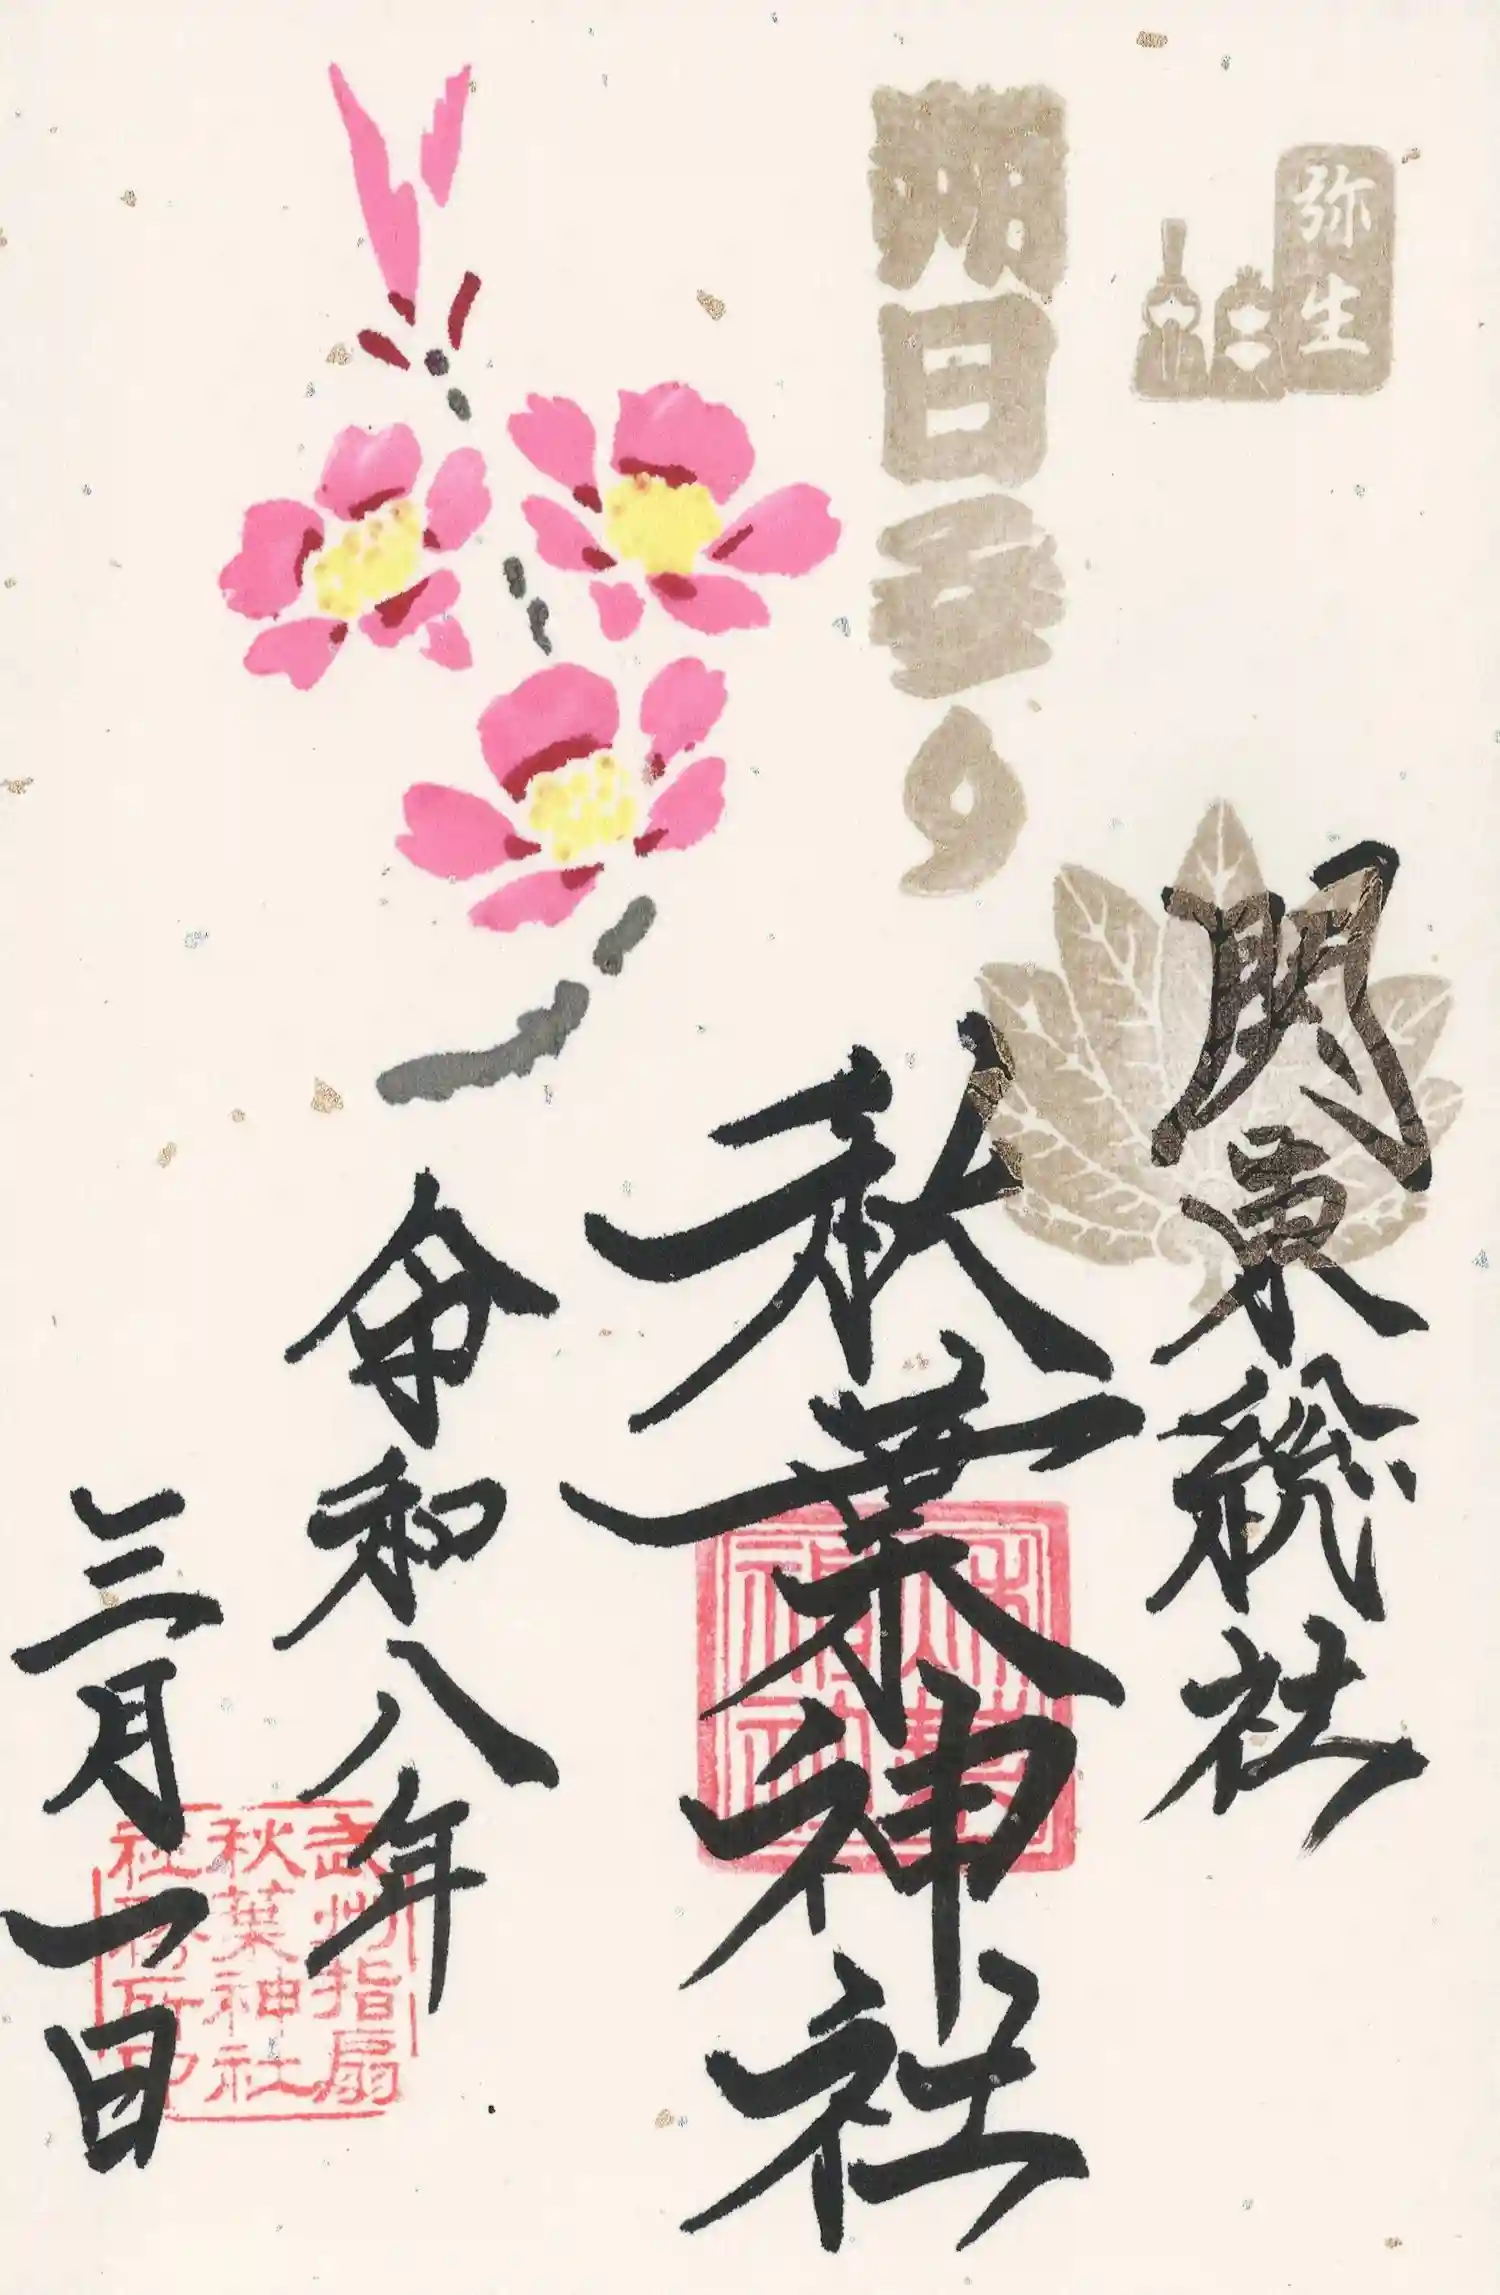 弥生
朔日参り
関東総社
秋葉神社
秋葉
神社
令和八年
三月一日
武州指扇
秋葉神社
社務所印